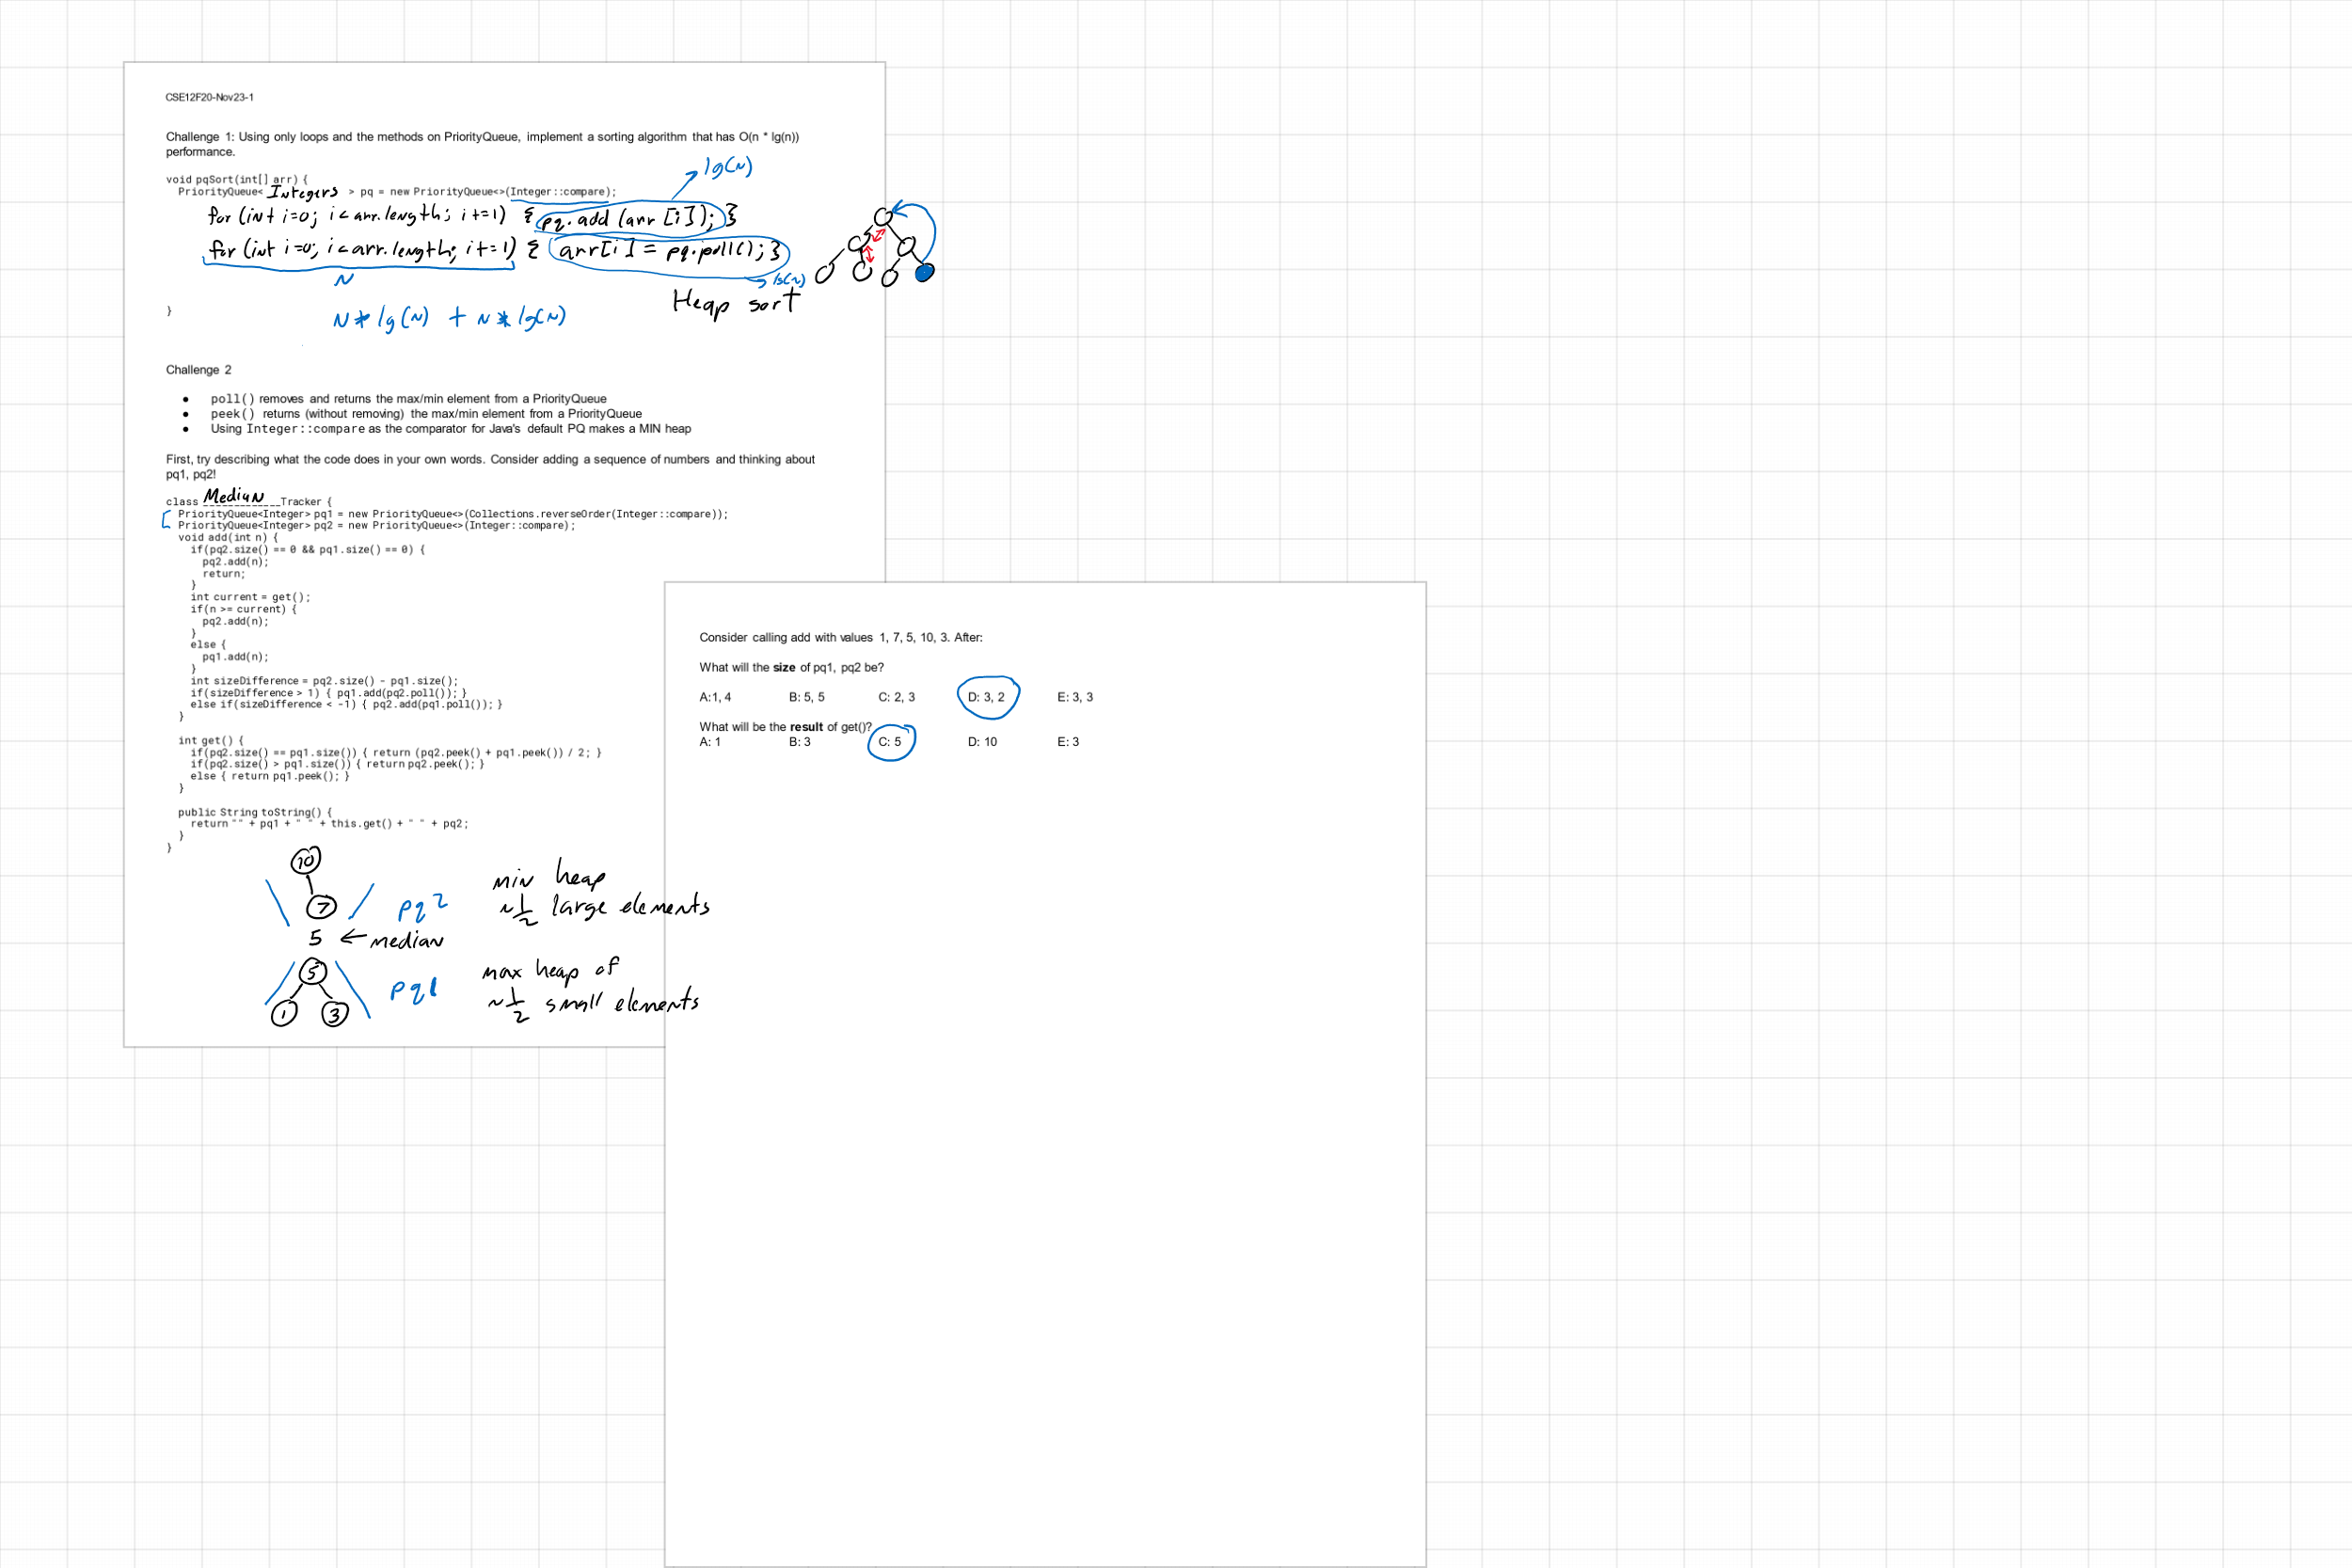 CSE12F20-Nov23-1
Challenge 1: Using only loops and the methods on PriorityQueue, implement a sorting algorithm that has O(n * lg(n))
performance.
lg(N)
void pqSort(int[] arr) {
PriorityQueue< Integers > pq = new PriorityQueue<>(Integer::compare);
for (int i=0; i<arr.length; i+=1) { pq.add (arr [i]); }
for (int i=0; i<arr.length; i+=1) { arr[i] = pq.poll(); }
N
lg(N)
Heap sort
}
N * lg(N) + N * lg(N)
Challenge 2
● poll() removes and returns the max/min element from a PriorityQueue
● peek() returns (without removing) the max/min element from a PriorityQueue
● Using Integer::compare as the comparator for Java's default PQ makes a MIN heap
First, try describing what the code does in your own words. Consider adding a sequence of numbers and thinking about
pq1, pq2!
class Median_____________Tracker {
PriorityQueue<Integer> pq1 = new PriorityQueue<>(Collections.reverseOrder(Integer::compare));
PriorityQueue<Integer> pq2 = new PriorityQueue<>(Integer::compare);
void add(int n) {
if(pq2.size() == 0 && pq1.size() == 0) {
pq2.add(n);
return;
}
int current = get();
if(n >= current) {
pq2.add(n);
}
else {
pq1.add(n);
}
int sizeDifference = pq2.size() - pq1.size();
if(sizeDifference > 1) { pq1.add(pq2.poll()); }
else if(sizeDifference < -1) { pq2.add(pq1.poll()); }
}
int get() {
if(pq2.size() == pq1.size()) { return (pq2.peek() + pq1.peek()) / 2; }
if(pq2.size() > pq1.size()) { return pq2.peek(); }
else { return pq1.peek(); }
}
public String toString() {
return "" + pq1 + " " + this.get() + " " + pq2;
}
}
10
min heap
7 pq2 ~1/2 large elements
5 ← median
5 pq1 max heap of
1 3 ~1/2 small elements
Consider calling add with values 1, 7, 5, 10, 3. After:
What will the size of pq1, pq2 be?
A:1, 4 B: 5, 5 C: 2, 3 D: 3, 2 E: 3, 3
What will be the result of get()?
A: 1 B: 3 C: 5 D: 10 E: 3